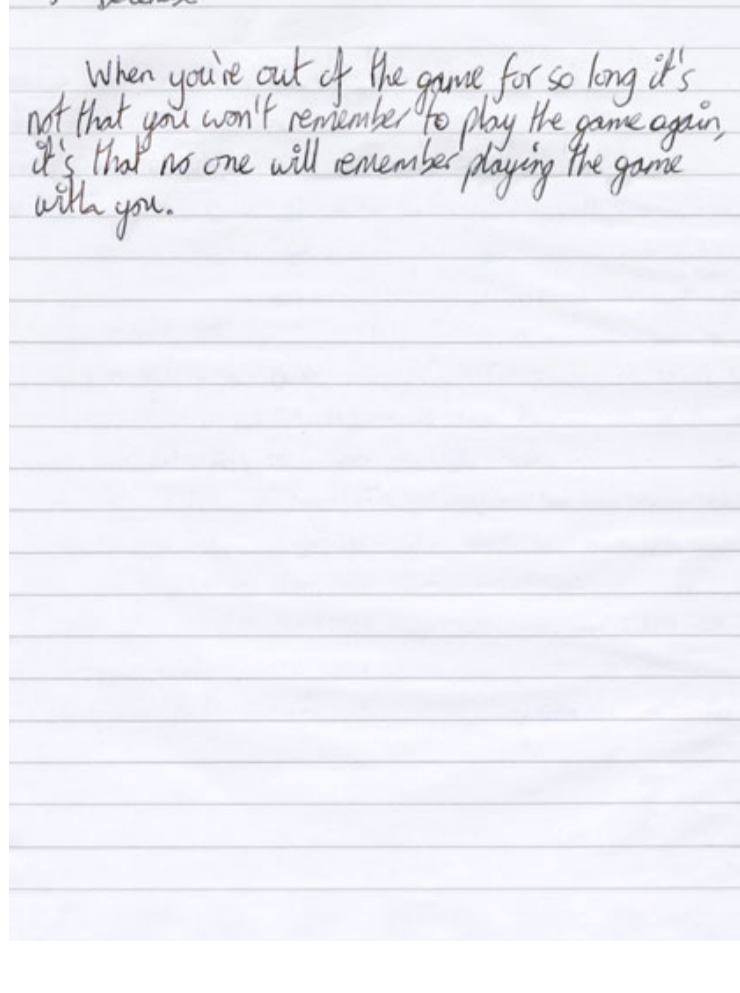 When you're out of the game for so long it's
not that you won't remember to play the game again,
it's that no one will remember playing the game
with you.